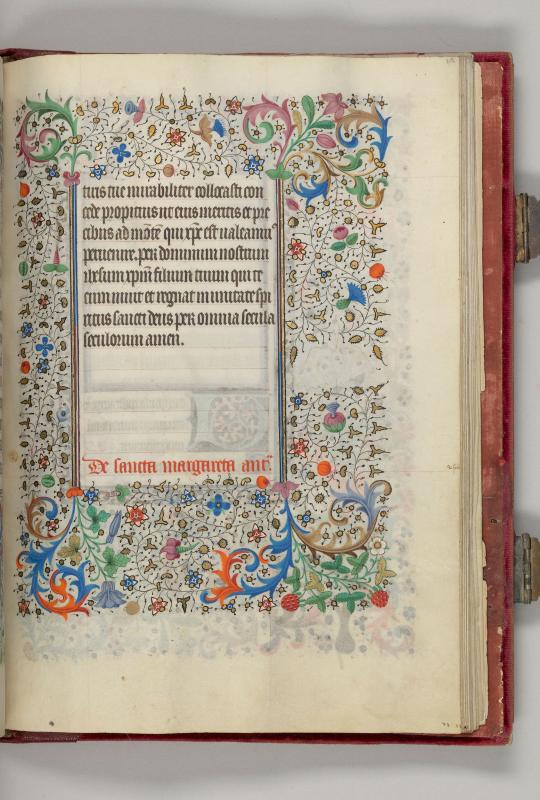 tutis tue mirabiliter collocasti con
cede propicius ut eius meritis et pre
cibus ad montē qui xp̄c est ualeamus
peruenire. per dominum nostrum
ihesum xp̄m filium tuum qui te
cum uiuit et regnat in unitate spi
ritus sancti deus per omnia secula
seculorum amen.
De sancta margareta antꝰ.